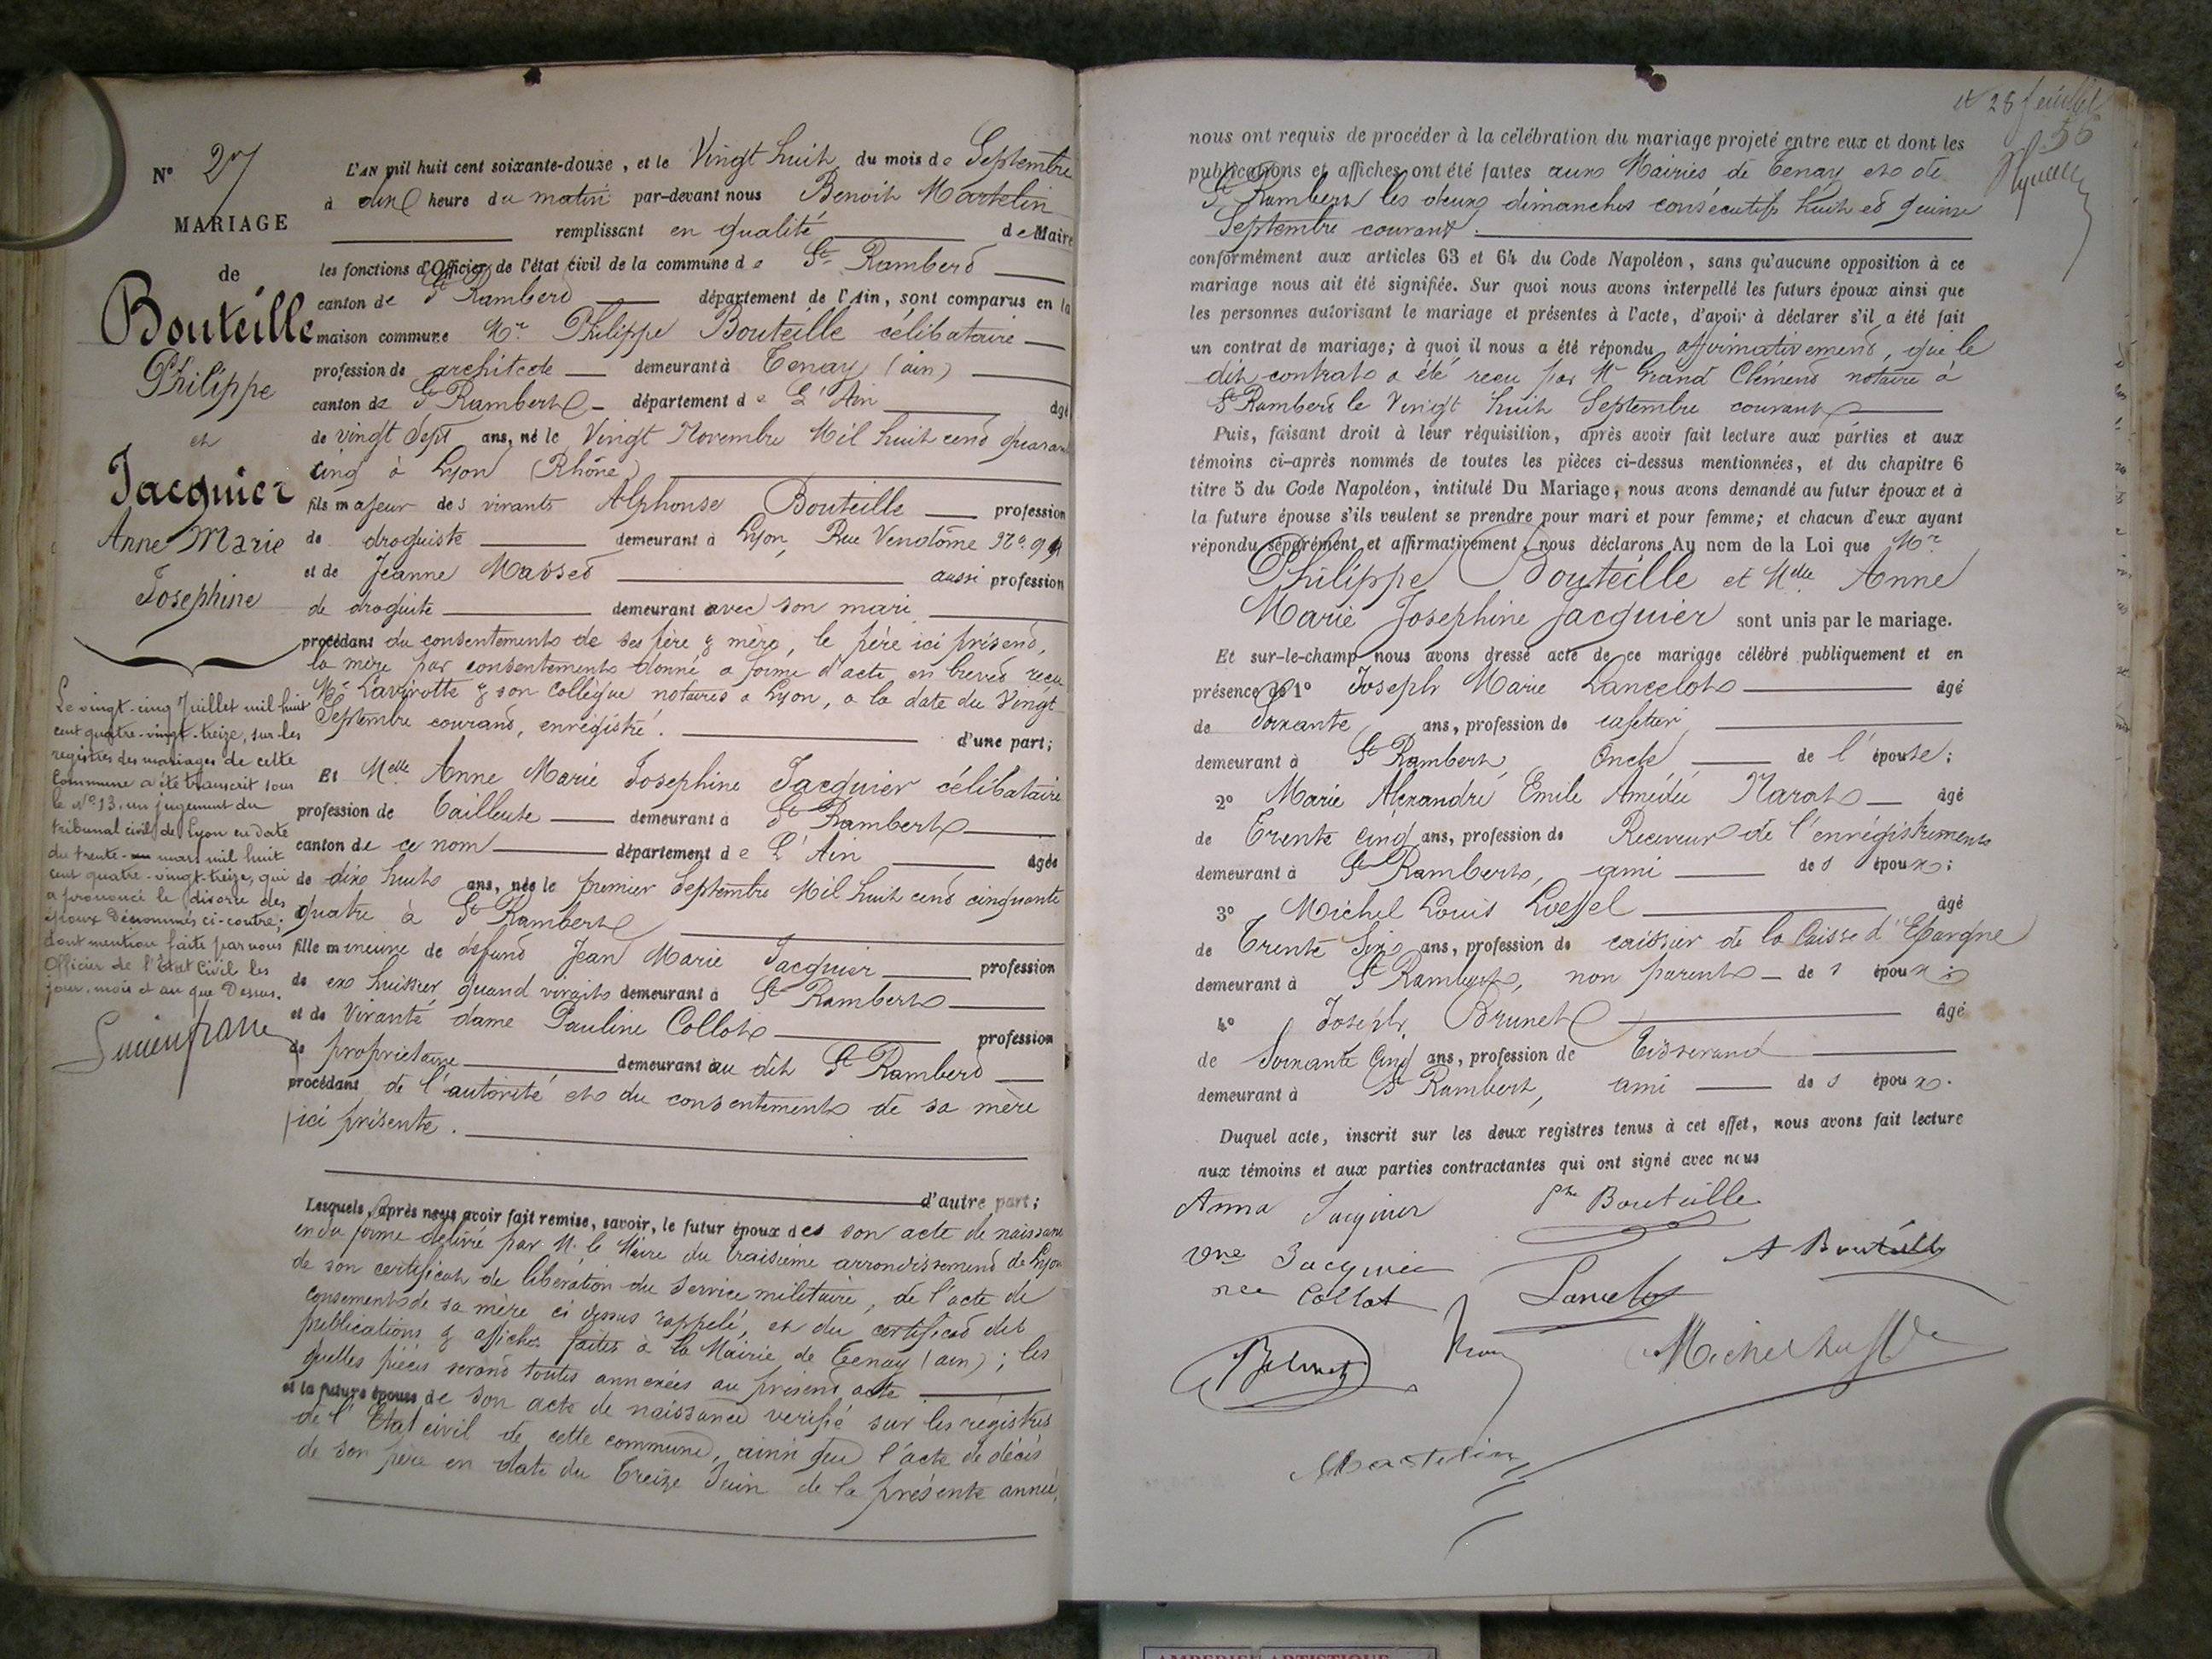 N° 27
MARIAGE
de
Bouteille
Philippe
et
Jacquier
Anne Marie
Josephine
Le vingt-cinq Juillet mil huit
cent quatre-vingt-treize, sur les
registres des mariages de cette
Commune a été transcrit sous
le N° 13, un jugement du
tribunal civil de Lyon en date
du trente mars mil huit
cent quatre-vingt-treize, qui
a prononcé le divorce des
époux dénommés ci-contre;
dont mention faite par nous
Officier de l'Etat Civil les
jour, mois et an que Dessus.
L'AN mil huit cent soixante-douze, et le Vingt huit du mois de Septembre
à heure du matin par-devant nous Benoit Martelin
remplissant en qualité de Maire
les fonctions d'Officier de l'état civil de la commune de St Rambert
canton de St Rambert département de l'Ain, sont comparus en la
maison commune Mr Philippe Bouteille célibataire
profession de architecte demeurant à Tenay (ain)
canton de St Rambert département de L'Ain âgé
de vingt sept ans, né le Vingt Novembre Mil huit cent quaran
cinq à Lyon (Rhône)
fils majeur des vivants Alphonse Bouteille profession
de droguiste demeurant à Lyon, Rue Vendôme N°
et de Jeanne Masset aussi profession
de droguiste demeurant avec son mari
procédant du consentement de ses père & mère, le père ici présent,
la mère par consentement donné a forme d'acte en brevet reçu
Me Lavirotte & son collègue notaires a Lyon, a la date du Vingt
Septembre courant, enrégistré. d'une part;
Et Melle Anne Marie Josephine Jacquier célibataire
profession de Tailleuse demeurant à St Rambert
canton de ce nom département de L'Ain âgée
de dix huit ans, née le premier Septembre Mil huit cent cinquante
quatre à St Rambert
fille mineure de défunt Jean Marie Jacquier profession
de ex huissier quand vivait demeurant à St Rambert
et de Vivante dame Pauline Collot profession
de propriétaire demeurant au dit St Rambert
procédant de l'autorité et du consentement de sa mère
ici présente.
d'autre part;
Lesquels, après nous avoir fait remise, savoir, le futur époux des son acte de naissance
en du forme délivré par M. le Maire du troisième arrondissement de Lyon
de son certificat de libération du service militaire, de l'acte de
consentement de sa mère ci dessus rappelé, et du certificat des
publications & affiches faites à la Mairie de Tenay (ain); les
quelles pièces seront toutes annexées au présent acte
et la future épouse de son acte de naissance verifié sur les registres
de l'Etat civil de cette commune, ainsi que l'acte de décès
de son père en date du Treize Juin de la présente année,
et 28 feuillet
55
nous ont requis de procéder à la célébration du mariage projeté entre eux et dont les
publications et affiches ont été faites aux Mairies de Tenay et de
St Rambert les deux dimanches consécutifs huit et quinze
Septembre courant.
conformément aux articles 63 et 64 du Code Napoléon, sans qu'aucune opposition à ce
mariage nous ait été signifiée. Sur quoi nous avons interpellé les futurs époux ainsi que
les personnes autorisant le mariage et présentes à l'acte, d'avoir à déclarer s'il a été fait
un contrat de mariage; à quoi il nous a été répondu affirmativement, que le
dit contrat a été reçu par Me Grand Clément notaire à
St Rambert le Vingt huit Septembre courant
Puis, faisant droit à leur réquisition, après avoir fait lecture aux parties et aux
témoins ci-après nommés de toutes les pièces ci-dessus mentionnées, et du chapitre 6
titre 5 du Code Napoléon, intitulé Du Mariage, nous avons demandé au futur époux et à
la future épouse s'ils veulent se prendre pour mari et pour femme; et chacun d'eux ayant
répondu séparément et affirmativement, nous déclarons Au nom de la Loi que Mr
Philippe Bouteille et Melle Anne
Marie Josephine Jacquier sont unis par le mariage.
Et sur-le-champ nous avons dressé acte de ce mariage célébré publiquement et en
présence de 1° Joseph Marie Lancelot âgé
de Soixante ans, profession de cafetier
demeurant à St Rambert, Oncle de l'épouse;
2° Marie Alexandre Emile Amédée Narat âgé
de Trente cinq ans, profession de Receveur de l'enrégistrement
demeurant à St Rambert, ami des époux;
3° Michel Louis Loeffel âgé
de Trente Six ans, profession de caissier de la Caisse d'Epargne
demeurant à St Rambert, non parent des époux;
4° Joseph Brunet âgé
de Soixante Cinq ans, profession de Tisserand
demeurant à St Rambert, ami des époux.
Duquel acte, inscrit sur les deux registres tenus à cet effet, nous avons fait lecture
aux témoins et aux parties contractantes qui ont signé avec nous
Anna Jacquier Phe Bouteille
Vve Jacquier A Bouteille
née Collot Lancelot
Brunet
Martelin